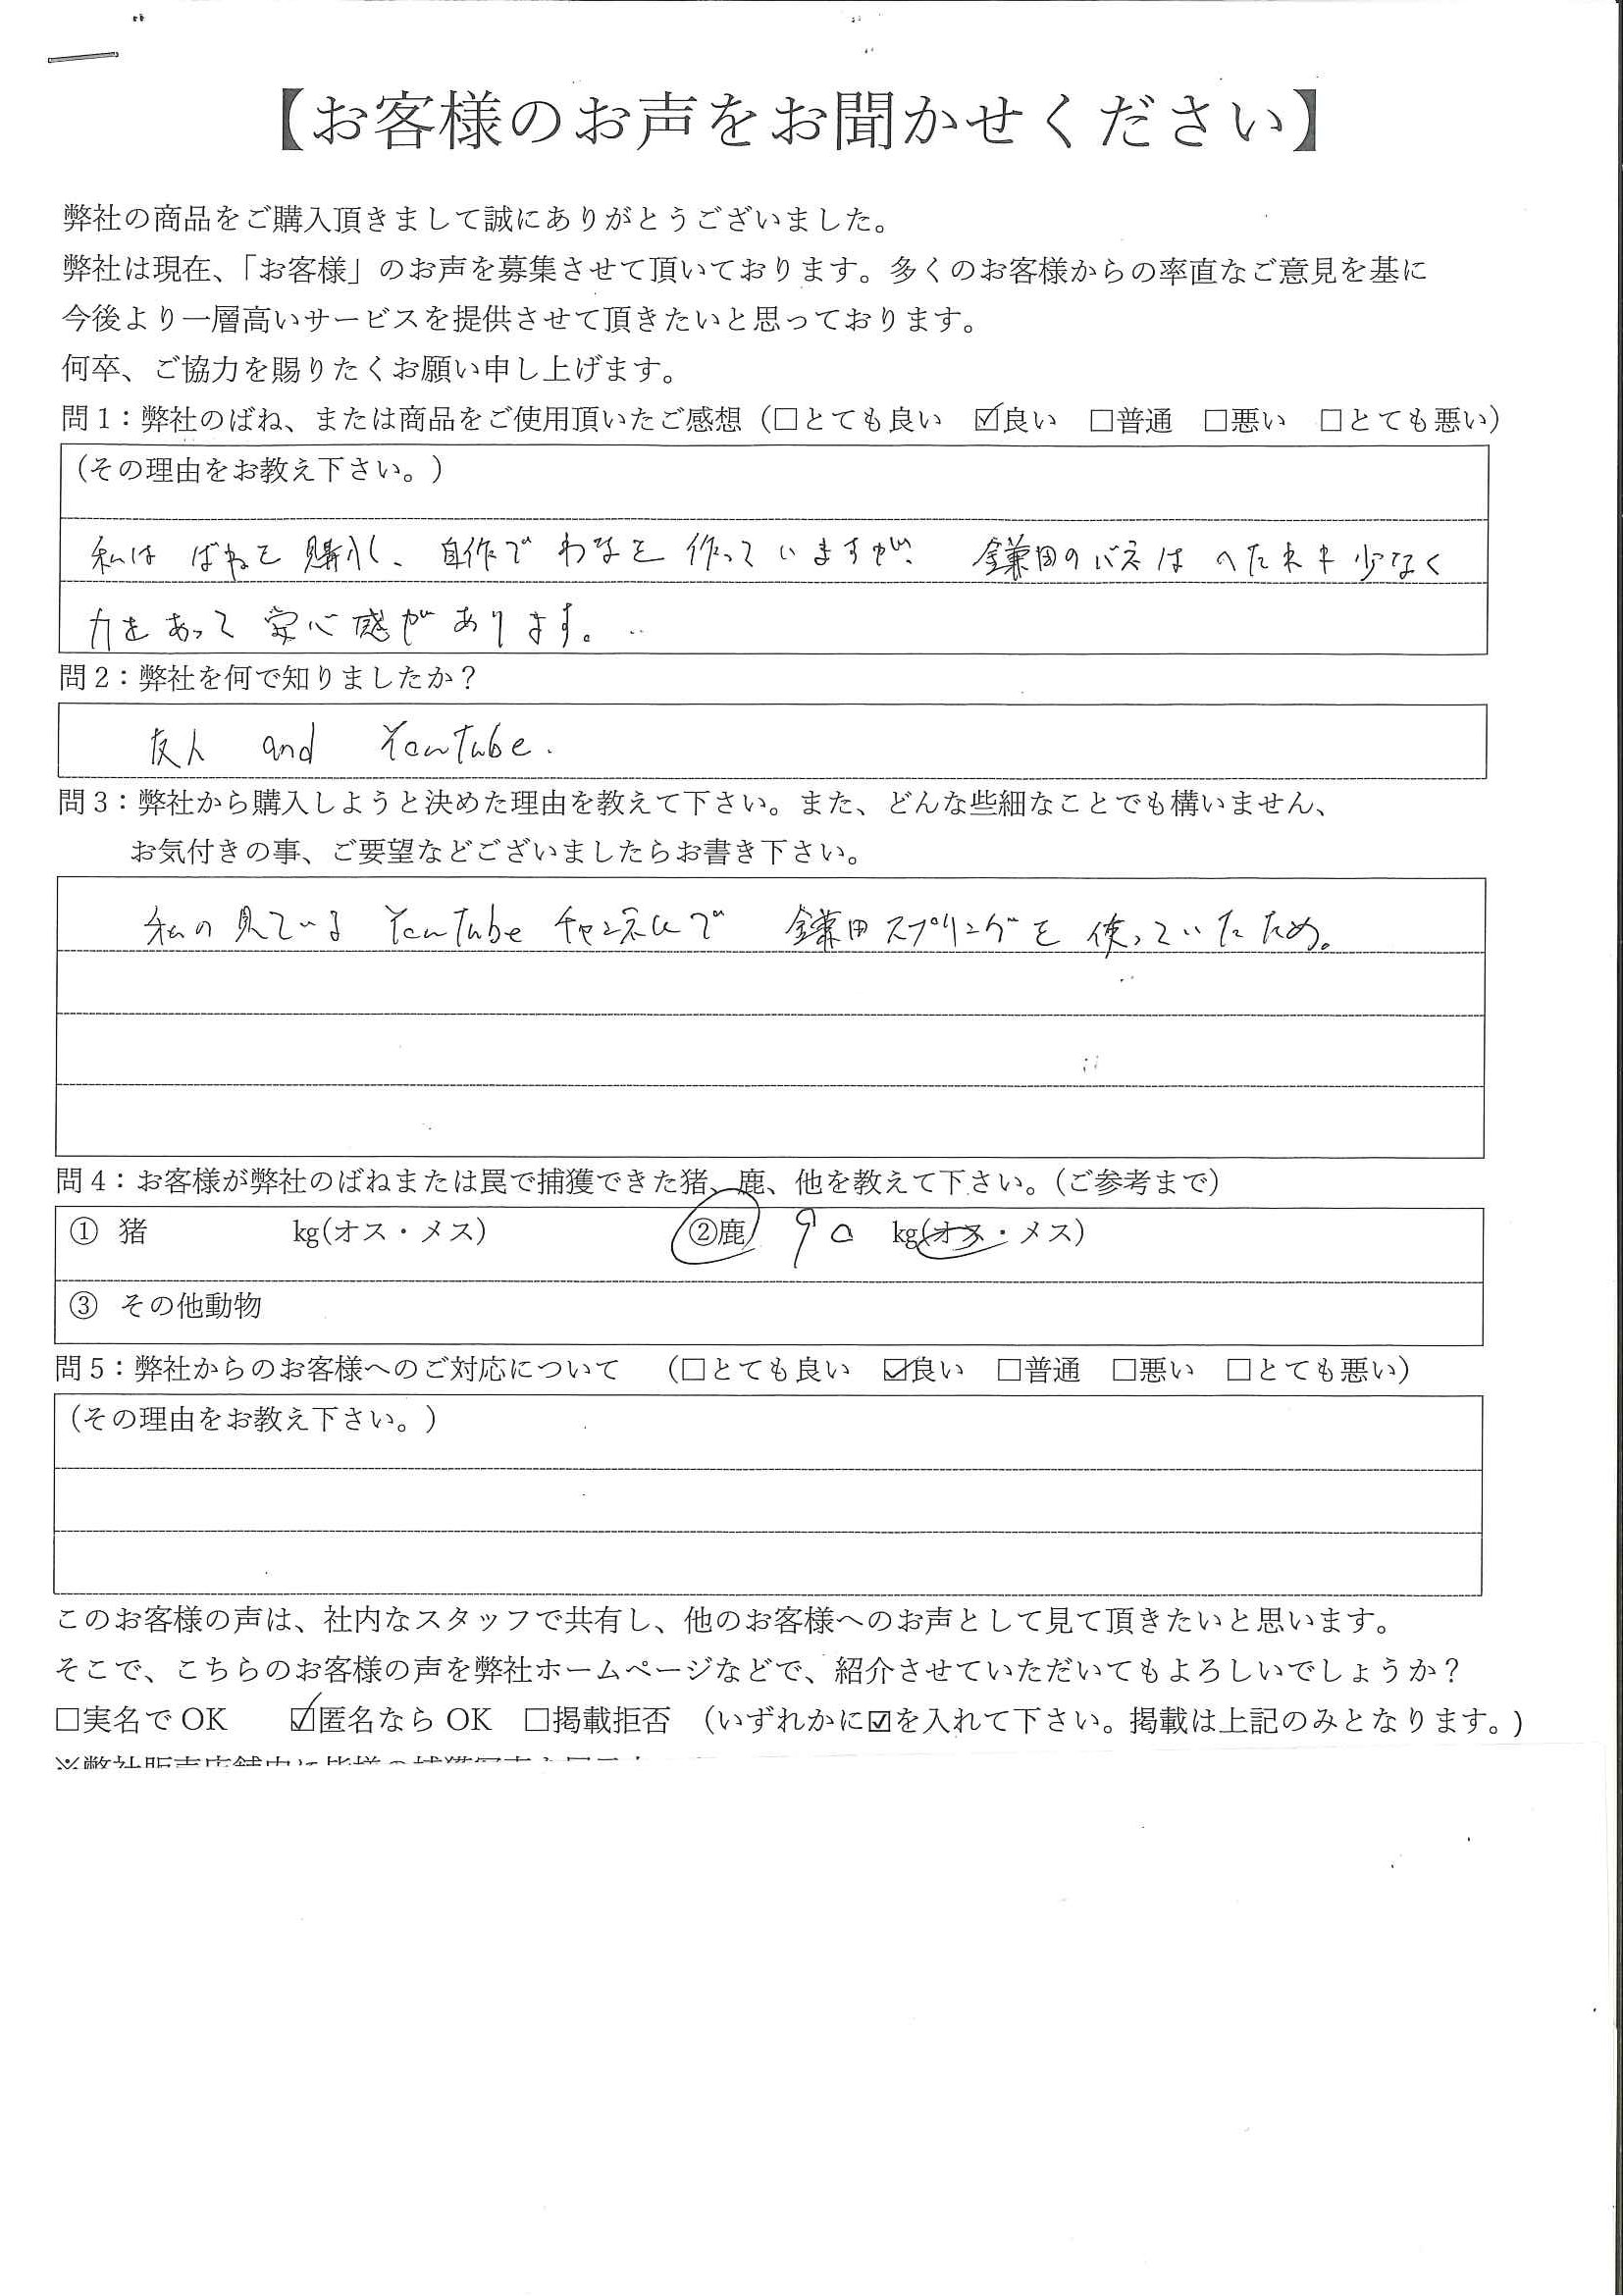 【お客様のお声をお聞かせください】
弊社の商品をご購入頂きまして誠にありがとうございました。
弊社は現在、「お客様」のお声を募集させて頂いております。多くのお客様からの率直なご意見を基に
今後より一層高いサービスを提供させて頂きたいと思っております。
何卒、ご協力を賜りたくお願い申し上げます。
問1：弊社のばね、または商品をご使用頂いたご感想（□とても良い ☑良い □普通 □悪い □とても悪い）
（その理由をお教え下さい。）
私は ばねを購入し、自作で わなを 作っていますが、 鎌田のバネは へたれも少なく
力もあって 安心感があります。
問2：弊社を何で知りましたか？
友人 and YouTube.
問3：弊社から購入しようと決めた理由を教えて下さい。また、どんな些細なことでも構いません、
お気付きの事、ご要望などございましたらお書き下さい。
私の見ている YouTube チャンネルで 鎌田スプリングを 使っていたため。
問4：お客様が弊社のばねまたは罠で捕獲できた猪、鹿、他を教えて下さい。（ご参考まで）
① 猪 kg(オス・メス) ②鹿 90 kg(オス・メス)
③ その他動物
問5：弊社からのお客様へのご対応について （□とても良い ☑良い □普通 □悪い □とても悪い）
（その理由をお教え下さい。）
このお客様の声は、社内なスタッフで共有し、他のお客様へのお声として見て頂きたいと思います。
そこで、こちらのお客様の声を弊社ホームページなどで、紹介させていただいてもよろしいでしょうか？
□実名でOK ☑匿名ならOK □掲載拒否 （いずれかに☑を入れて下さい。掲載は上記のみとなります。)